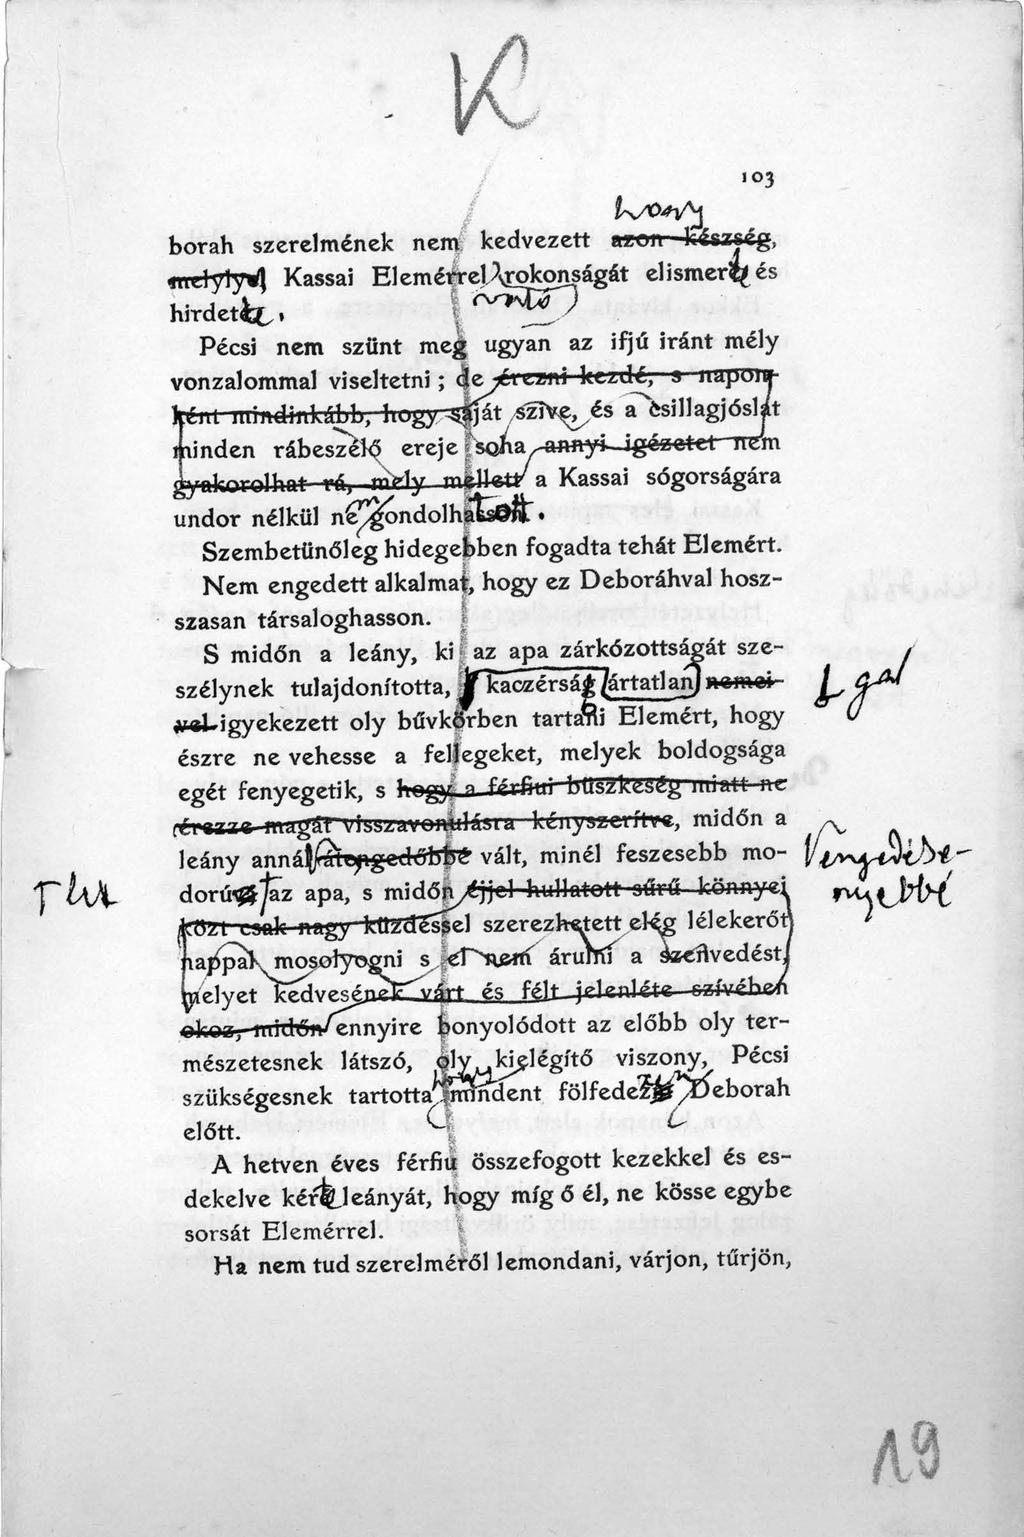 K
103
hogy
borah szerelmének nem kedvezett azon készség,
melylyel Kassai Elemérrel rokonságát elismerte és
való
hirdeté.
Pécsi nem szünt meg ugyan az ifjú iránt mély
vonzalommal viseltetni; de érezni kezdé, s napon-
ként mindinkább, hogy saját szive, és a csillagjóslat
minden rábeszélő ereje soha annyi igézetet nem
gyakorolhat rá, mely mellett a Kassai sógorságára
undor nélkül ne m gondolhasson. tott.
Szembetünőleg hidegebben fogadta tehát Elemért.
Nem engedett alkalmat, hogy ez Deboráhval hosz-
szasan társaloghasson.
S midőn a leány, ki az apa zárkózottságát sze-
szélynek tulajdonította, kaczérság ártatlan nemei-
gal
vel igyekezett oly bűvkörben tartani Elemért, hogy
észre ne vehesse a fellegeket, melyek boldogsága
egét fenyegetik, s hogy a férfiui büszkeség miatt ne
érezze magát visszavonulásra kényszerítve, midőn a
leány annál átengedőbbé vált, minél feszesebb mo-
engedéke-
nyebbé
dorúvá az apa, s midőn éjjel hullatott sűrű könnyei
közt csak nagy küzdéssel szerezhetett elég lélekerőt
nappal mosolyogni s el nem árulni a szenvedést,
melyet kedvesének várt és félt jelenléte szívében
okoz, midőn ennyire bonyolódott az előbb oly ter-
mészetesnek látszó, oly kielégítő viszony, Pécsi
hogy
szükségesnek tartotta mindent fölfedezni Deborah
előtt.
A hetven éves férfiu összefogott kezekkel és es-
dekelve kérte leányát, hogy míg ő él, ne kösse egybe
sorsát Elemérrel.
Ha nem tud szerelméről lemondani, várjon, tűrjön,
19